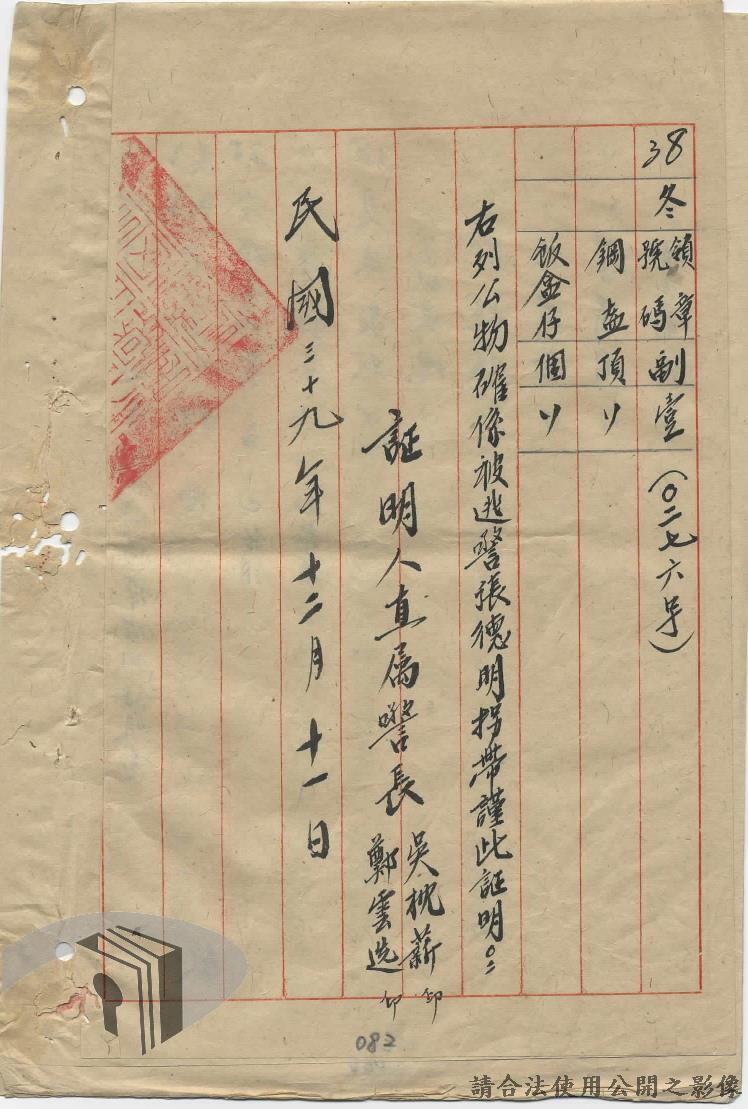 38冬領章號碼副壹(〇二七六号)
鋼盔頂〃
飯盒仔個〃
右列公物確係被逃警張德明拐帶謹此証明
証明人直屬警長吳枕薪印
鄭雲选印
民國三十九年十二月十一日
082
請合法使用公開之影像